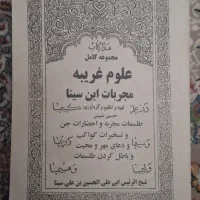 مجموعه کامل
علوم غریبه
مجربات ابن سینا
تهیه و تنظیم و گردآورنده
حسین نمینی
طلسمات مجربه و احضارات جن
و تسخیرات کواکب
و دعای مهر و محبت
و باطل کردن طلسمات
شیخ الرئیس ابی علی الحسین بن علی سینا